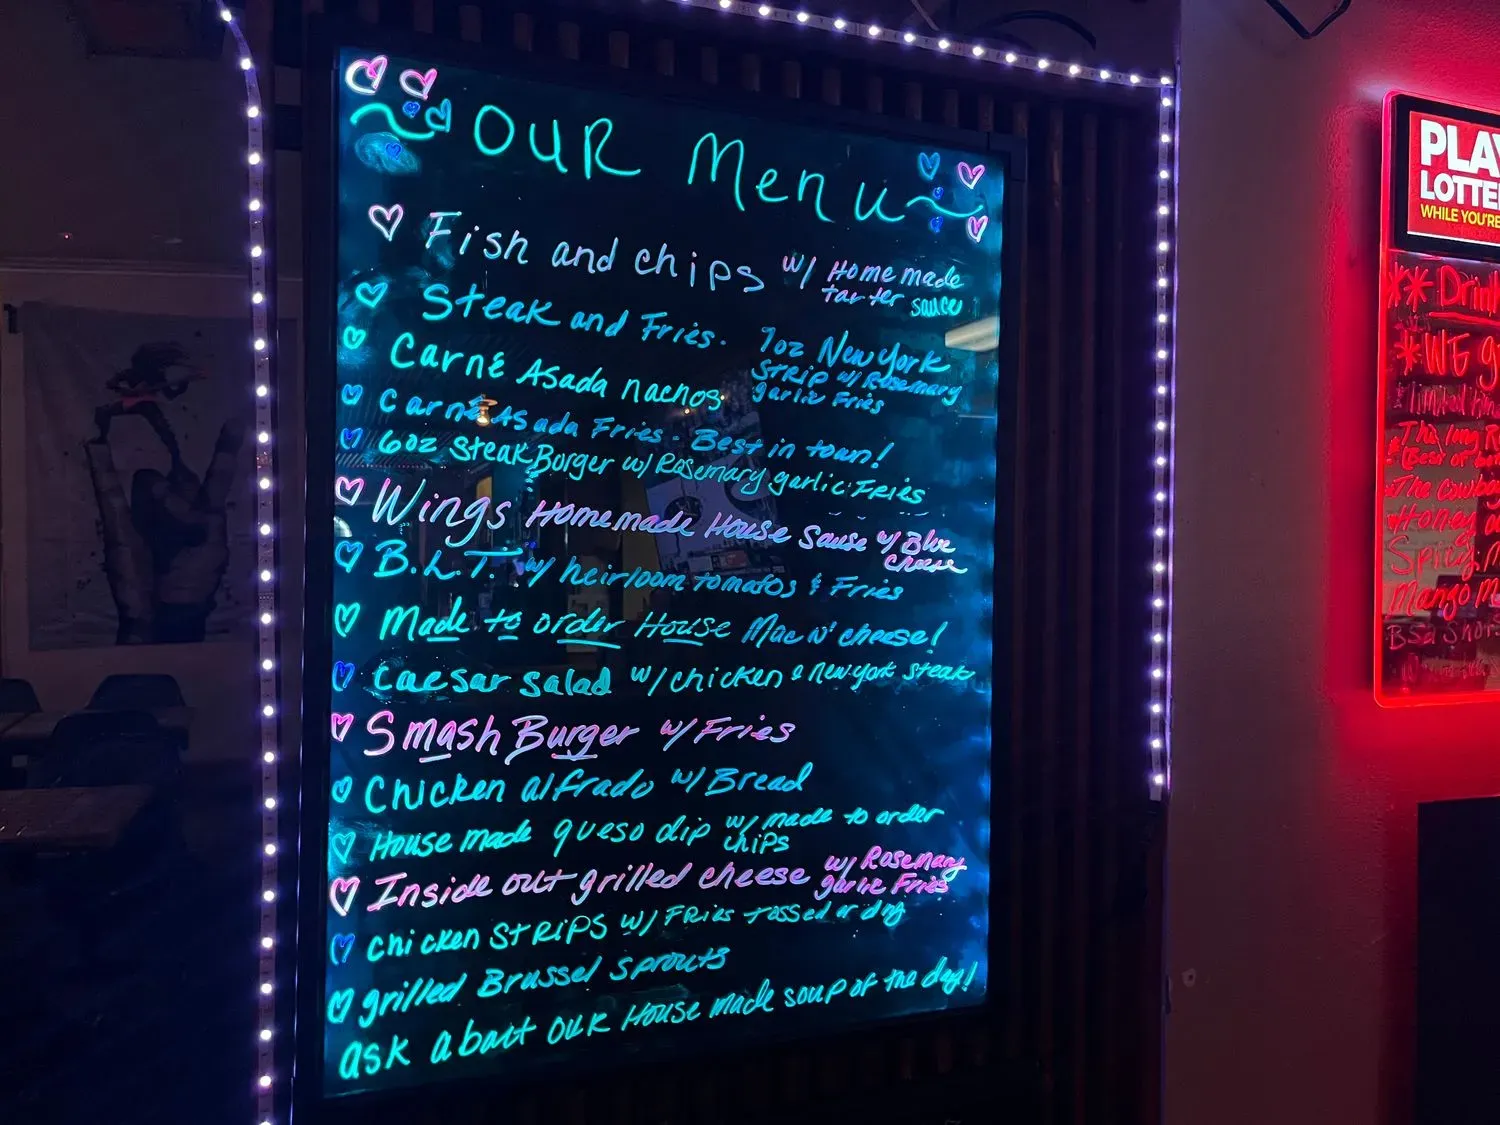 ~OUR Menu~
Fish and chips w/ Homemade
tarter sauce
Steak and Fries. 7oz New York
STRIP w/ Rosemary
garlic Fries
Carné Asada nachos
Carné Asada Fries - Best in town!
6oz Steak Borger w/ Rosemary garlic Fries
Wings Homemade House Sause w/ Blue
cheese
B.L.T. w/ heirloom tomatos & Fries
Made to order House Mac N' cheese!
Caesar Salad w/ chicken o New york steak
Smash Burger w/ Fries
Chicken alfrado w/ Bread
House made queso dip w/ made to order
chips
Inside out grilled cheese w/ Rosemary
garlic Fries
Chicken STRIPS w/ FRies tossed or dry
grilled Brussel sprouts
ask about our House made soup of the day!
PLAY
LOTTE
WHILE YOU'RE
** Drin
*WE g
limited
The long
(Best
The Cowboy
Honey
Spicy
Mango M